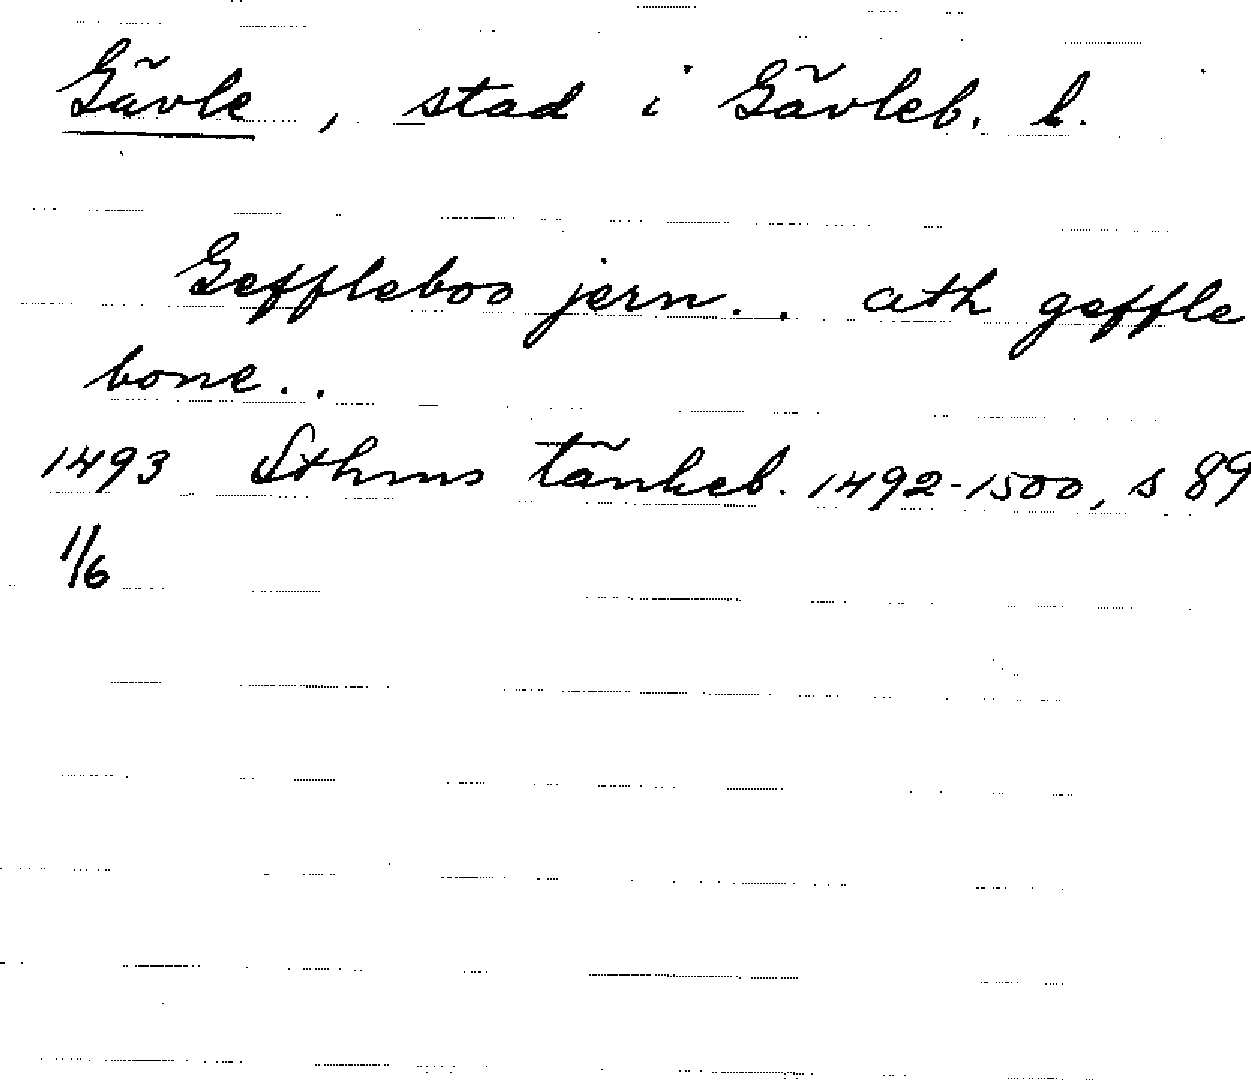 Gävle, stad i Gävleb. l.
Geffleboo jern.. ath geffle
bone..
1493 Sthms tänkeb. 1492-1500, s 89
1/6